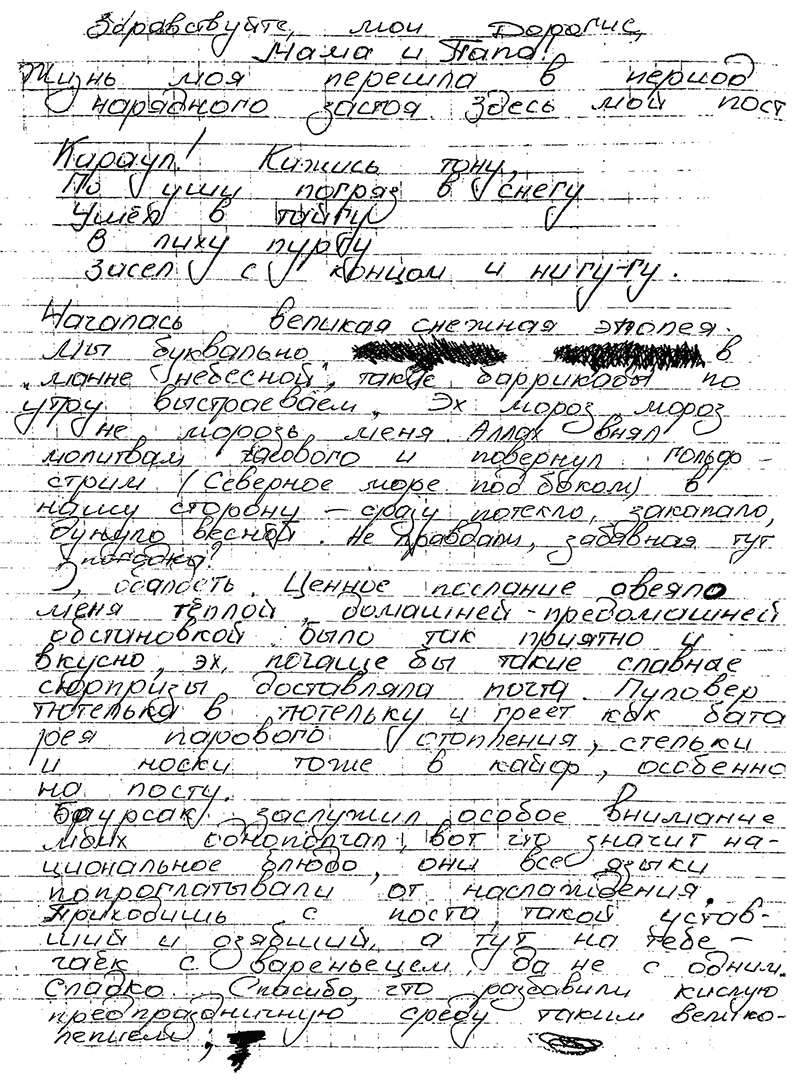 Здравствуйте, мои Дорогие,
Мама и Папа!
Жизнь моя перешла в период
нарядного застоя. Здесь мой пост
Караул! Кажись тону,
По уши погряз в снегу
Ушёл в тайгу
В лиху пургу
Засел с концом и ни гу-гу.
Началась великая снежная эпопея.
Мы буквально в
"манне небесной", такие баррикады по
утру выстраеваем. Эх мороз мороз
не морозь меня. Аллах внял
молитвам часового и повернул гольф-
стрим (Северное море под боком) в
нашу сторону – сразу потекло, закапало,
дунуло весной. Не правдали, забавная тут
погодка?
О, сладость. Ценное послание овеяло
меня тёплой, домашней-предомашней
обстановкой. Было так приятно и
вкусно, эх, почаще бы такие славные
сюрпризы доставляла почта. Пуловер
тютелька в тютельку и греет как бата
рея парового отопления, стельки
и носки тоже в кайф, особенно
на посту.
Баурсак заслужил особое внимание
моих однополчан, вот что значит на-
циональное блюдо, они все языки
попроглатывали от наслаждения.
Приходишь с поста, такой устав-
ший и озябший, а тут на тебе –
чаёк с вареньецем, да не с одним.
Сладко. Спасибо, что разбавили кислую
предпраздничную среду таким велико-
лепием;